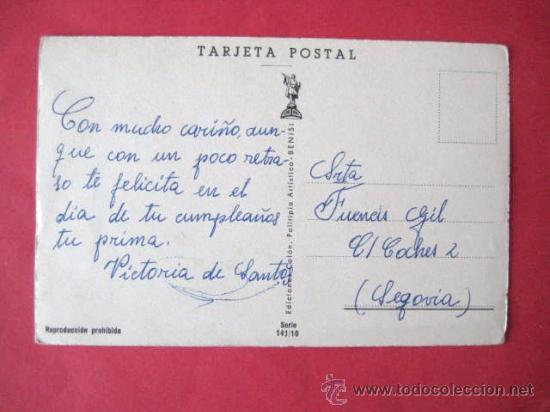 TARJETA POSTAL
Con mucho cariño, aun-
que con un poco retra-
so te felicita en el
día de tu cumpleaños
tu prima.
Victoria de Santos
Ediciones Colón, Politipia Artística-BENISI
Srta
Fuencis Gil
C/ Coches 2
(Segovia)
Reproducción prohibida
Serie
141/10
todocoleccion
www.todocoleccion.net